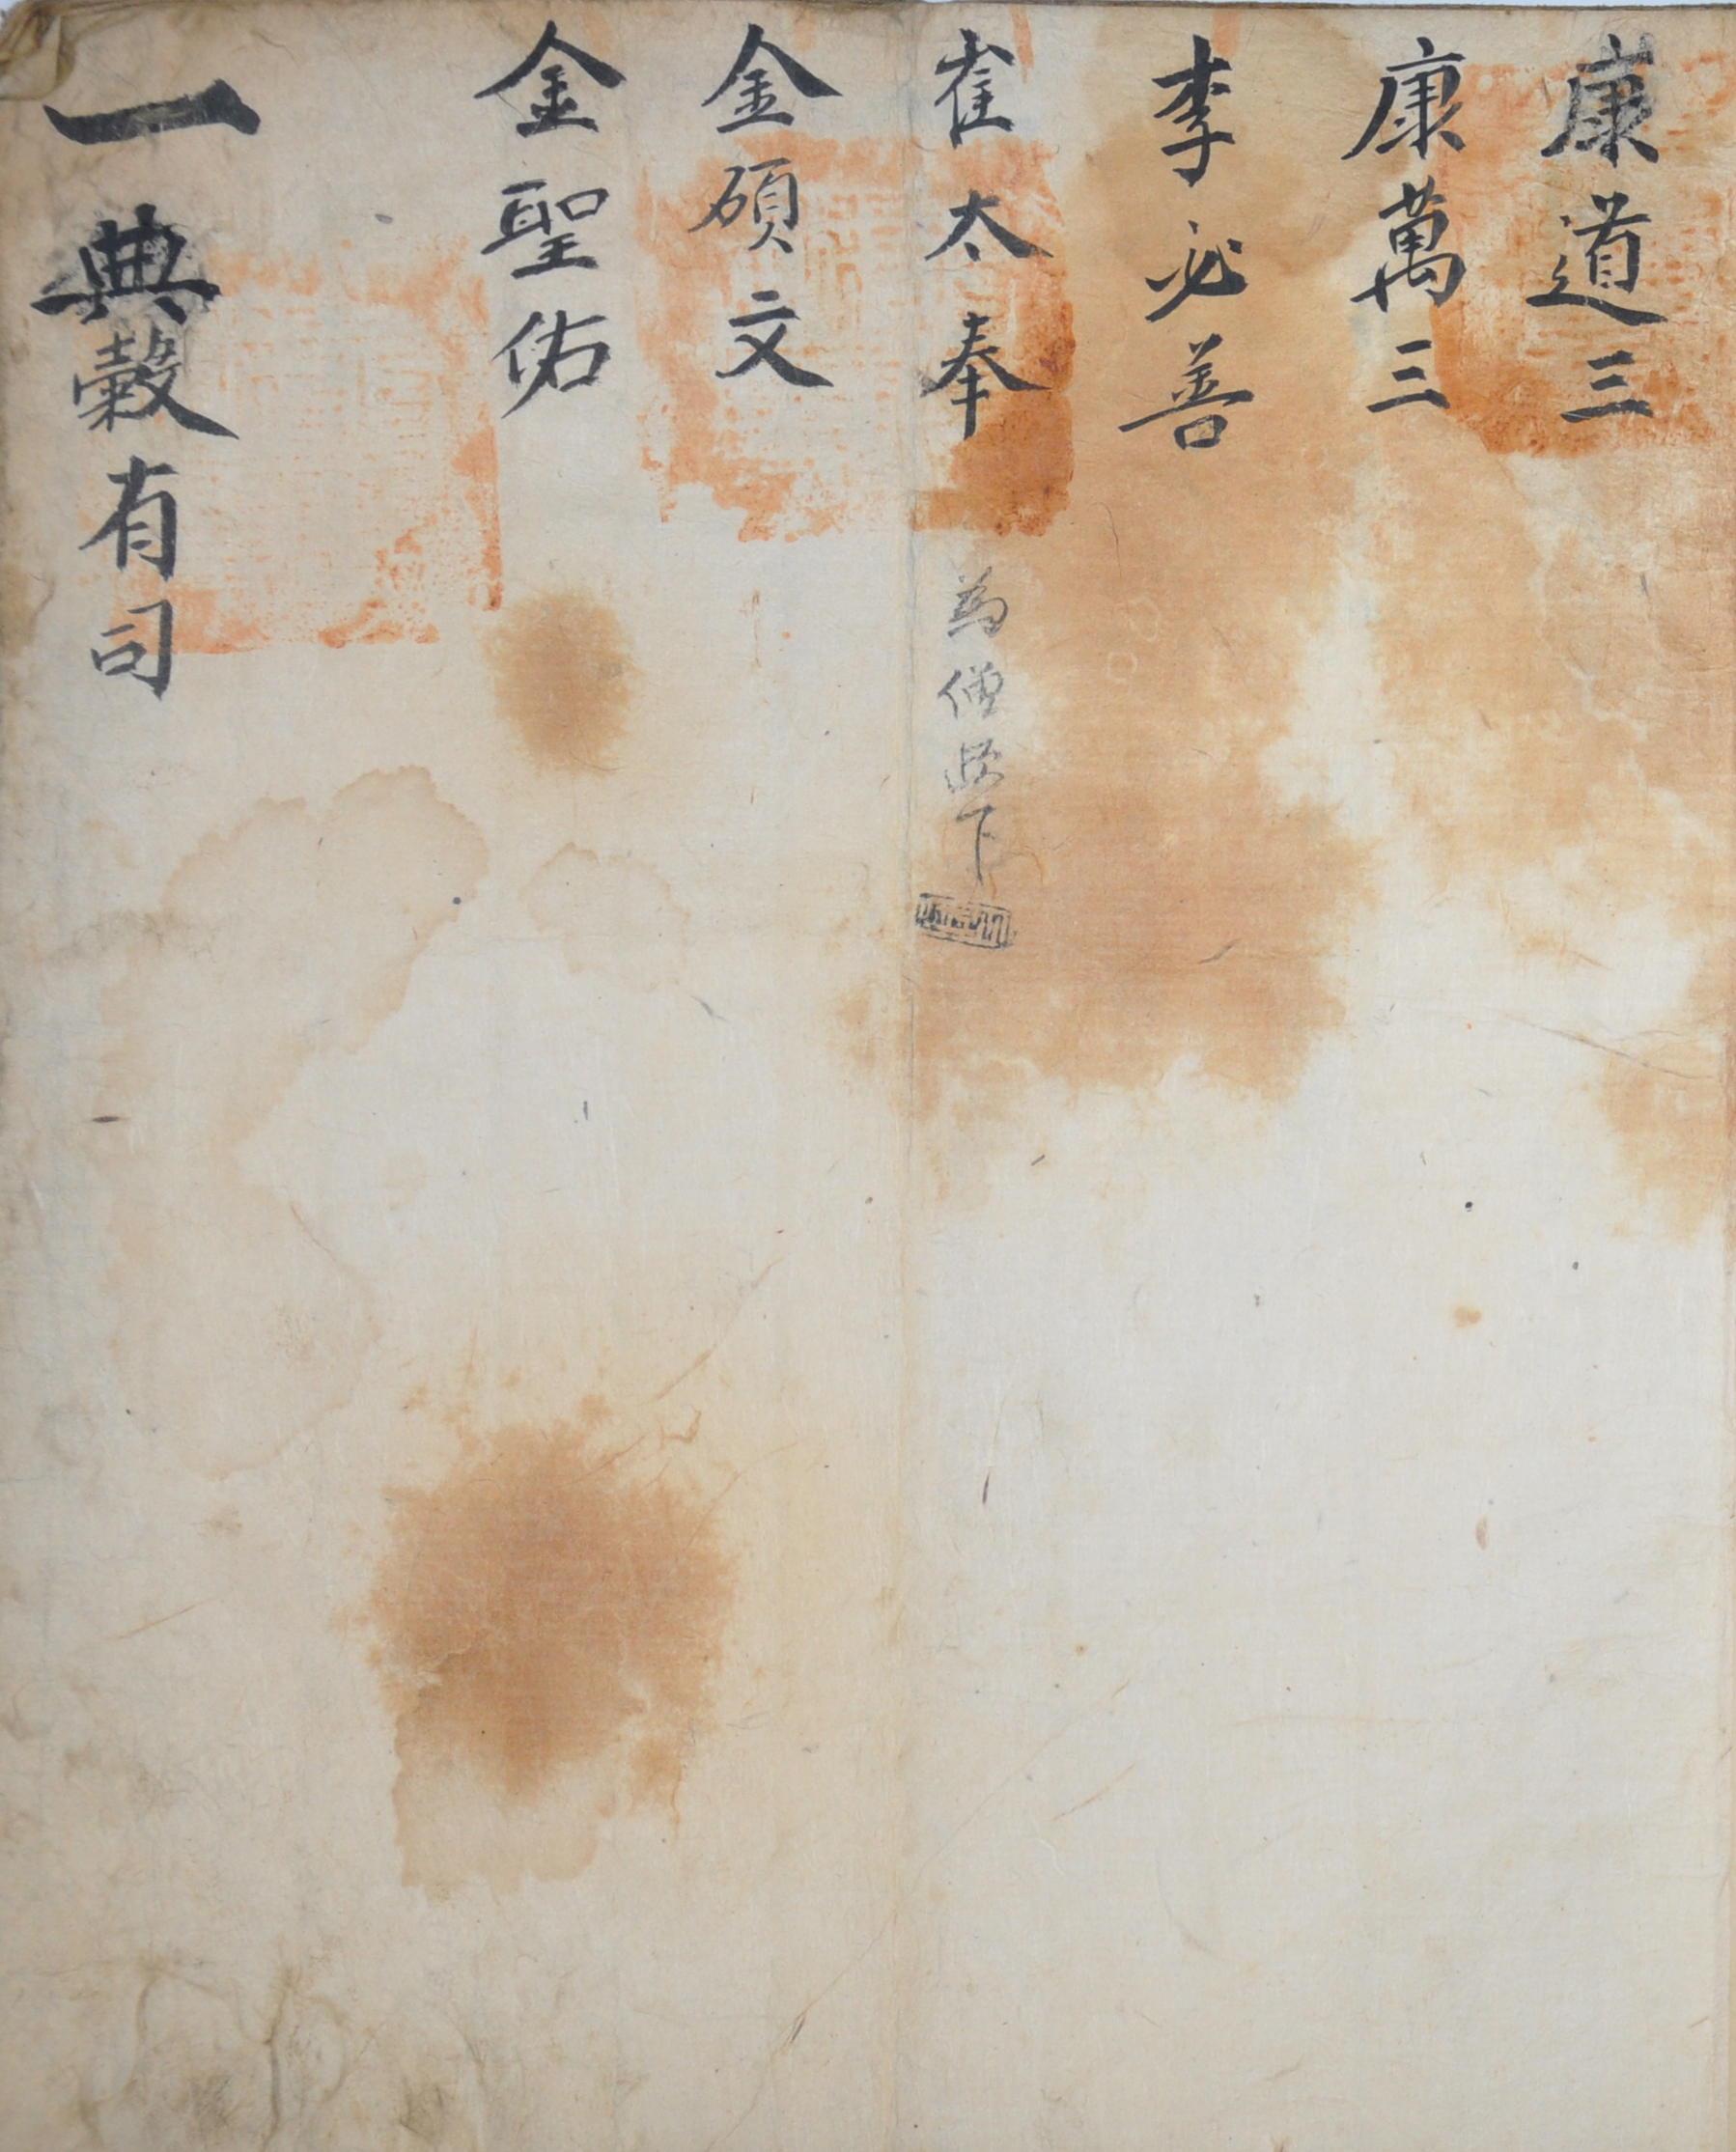 康道三
康萬三
李必善
崔太奉
為僧頉下
金碩文
金聖佑
一典穀有司